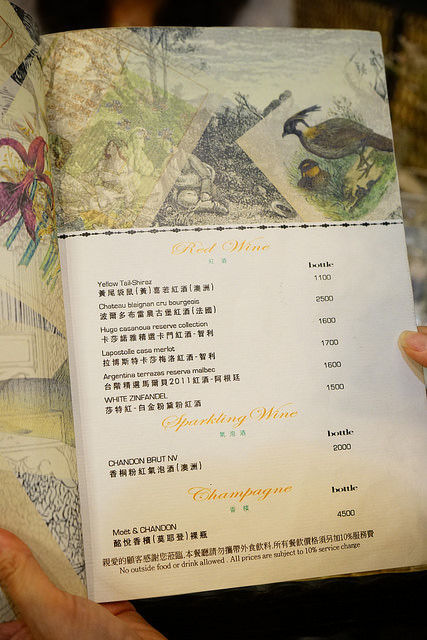 Red Wine
紅 酒
bottle
Yellow Tail-Shiraz 1100
黃尾袋鼠(黃)喜若紅酒(澳洲)
Chateau blaignan cru bourgeois 2500
波爾多布雷晨古堡紅酒(法國)
Hugo casanova reserve collection 1600
卡莎諾雅精選卡門紅酒-智利
Lapostolle casa merlot 1700
拉博斯特卡莎梅洛紅酒-智利
Argentina terrazas reserva malbec 1600
台階精選馬爾貝2011紅酒-阿根廷
WHITE ZINFANDEL 1500
莎特紅-白金粉黛粉紅酒
Sparkling Wine
氣 泡 酒
bottle
CHANDON BRUT NV 2000
香桐粉紅氣泡酒(澳洲)
Champagne
香 檳
bottle
Moët & CHANDON 4500
酩悅香檳(莫耶登)裸瓶
親愛的顧客感謝您蒞臨,本餐廳請勿攜帶外食飲料,所有餐飲價格須另加10%服務費
No outside food or drink allowed . All prices are subject to 10% service charge